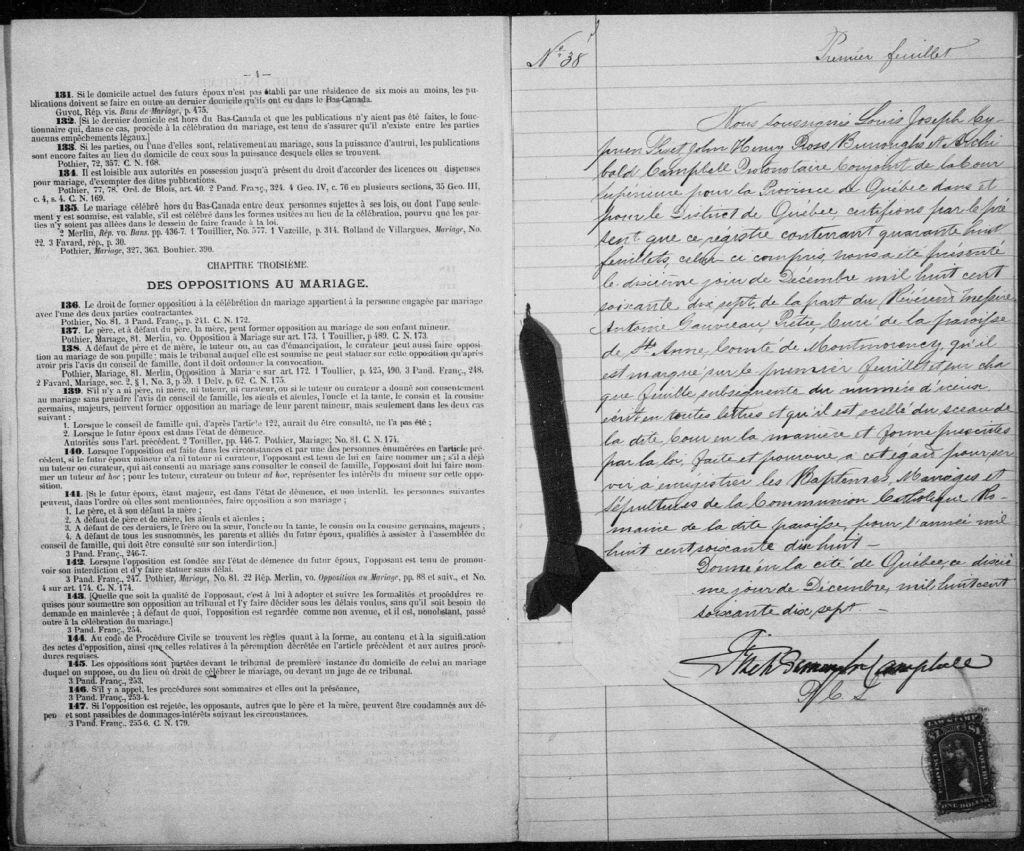 — 4 —
131. Si le domicile actuel des futurs époux n'est pas établi par une résidence de six mois au moins, les pu-
blications doivent se faire en outre au dernier domicile qu'ils ont eu dans le Bas-Canada.
Guyot, Rép. vis. Bans de Mariage, p. 475.
132. [Si le dernier domicile est hors du Bas-Canada et que les publications n'y aient pas été faites, le fonc-
tionnaire qui, dans ce cas, procède à la célébration du mariage, est tenu de s'assurer qu'il n'existe entre les parties
aucuns empêchements légaux.]
133. Si les parties, ou l'une d'elles sont, relativement au mariage, sous la puissance d'autrui, les publications
sont encore faites au lieu du domicile de ceux sous la puissance desquels elles se trouvent.
Pothier, 72, 357. C. N. 168.
134. Il est loisible aux autorités en possession jusqu'à présent du droit d'accorder des licences ou dispenses
pour mariage, d'exempter des dites publications.
Pothier, 77, 78. Ord. de Blois, art. 40. 2 Pand. Franç., 324. 4 Geo. IV, c. 76 en plusieurs sections, 35 Geo. III,
c. 4, s. 4. C. N. 169.
135. Le mariage célébré hors du Bas-Canada entre deux personnes sujettes à ses lois, ou dont l'une seule-
ment y est soumise, est valable, s'il est célébré dans les formes usitées au lieu de la célébration, pourvu que les par-
ties n'y soient pas allées dans le dessein de faire fraude à la loi.
2 Merlin, Rép. vo. Bans. pp. 436-7. 1 Touillier, No. 577. 1 Vazeille, p. 314. Rolland de Villargues, Mariage, No.
22. 3 Favard, rép., p. 30.
Pothier, Mariage, 327, 363. Bouhier. 390.
CHAPITRE TROISIÈME.
DES OPPOSITIONS AU MARIAGE.
136. Le droit de former opposition à la célébrétion du mariage appartient à la personne engagée par mariage
avec l'une des deux parties contractantes.
Pothier, No. 81. 3 Pand. Franç., p. 241. C. N. 172.
137. Le père, et à défaut du père, la mère, peut former opposition au mariage de son enfant mineur.
Pothier, Mariage, 81. Merlin, vo. Opposition à Mariage sur art. 173. 1 Touillier, p 489. C. N. 173.
138. A défaut de père et de mère, le tuteur ou, au cas d'émancipation, le curateur peut aussi faire opposi-
tion au mariage de son pupille ; mais le tribunal auquel elle est soumise ne peut statuer sur cette opposition qu'après
avoir pris l'avis du conseil de famille, dont il doit ordonner la convocation.
Pothier, Mariage, 81. Merlin, Opposition à Mariage sur art. 172. 1 Toullier, p. 425, 490. 3 Pand. Franç., 248.
2 Favard, Mariage, sec. 2, § 1, No. 3, p 59. 1 Delv. p. 62. C. N. 175.
139. S'il n'y a ni père, ni mère, ni tuteur, ni curateur, ou si le tuteur ou curateur a donné son consentement
au mariage sans prendre l'avis du conseil de famille, les aïeuls et aïeules, l'oncle et la tante, le cousin et la cousine
germains, majeurs, peuvent former opposition au mariage de leur parent mineur, mais seulement dans les deux cas
suivant :
1. Lorsque le conseil de famille qui, d'après l'article 122, aurait du être consulté, ne l'a pas été ;
2. Lorsque le futur époux est dans l'état de démence.
Autorités sous l'art. précédent. 2 Touiller, pp. 446-7. Pothier, Mariage; No. 81. C. N. 174.
140. Lorsque l'opposition est faite dans les circonstances et par une des personnes énumérées en l'article pré-
cédent, si le futur époux mineur n'a ni tuteur ni curateur, l'opposant est tenu de lui en faire nommer un ; s'il a déjà
un tuteur ou curateur, qui ait consenti au mariage sans consulter le conseil de famille, l'opposant doit lui faire nom-
mer un tuteur ad hoc ; pour les tuteur, curateur ou tuteur ad hoc, représenter les intérêts du mineur sur cette oppo-
sition.
141. [Si le futur époux, étant majeur, est dans l'état de démence, et non interdit, les personnes suivantes
peuvent, dans l'ordre où elles sont mentionnées, faire opposition à son mariage ;
1. Le père, et à son défaut la mère ;
2. A défaut de père et de mère, les aïeuls et aïeules ;
3. A défaut de ces derniers, le frère ou la sœur, l'oncle ou la tante, le cousin ou la cousine germains, majeurs ;
4. A défaut de tous les susnommés, les parents et alliés du futur époux, qualifiés à assister à l'assemblée du
conseil de famille, qui doit être consulté sur son interdiction.]
3 Pand. Franç., 246-7.
142. Lorsque l'opposition est fondée sur l'état de démence du futur époux, l'opposant est tenu de promou-
voir son interdiction et d'y faire statuer sans délai.
3 Pand. Franç., 247. Pothier, Mariage, No. 81. 22 Rép. Merlin, vo. Opposition au Mariage, pp. 88 et suiv., et No.
4 sur art. 174. C. N. 174.
143. [Quelle que soit la qualité de l'opposant, c'est à lui à adopter et suivre les formalités et procédures re-
quises pour soumettre son opposition au tribunal et l'y faire décider sous les délais voulus, sans qu'il soit besoin de
demande en mainlevée ; à défaut de quoi, l'opposition est regardée comme non avenue, et il est, nonobstant, passé
outre à la célébration du mariage.]
3 Pand. Franç., 254.
144. Au code de Procédure Civile se trouvent les règles quant à la forme, au contenu et à la signification
des actes d'opposition, ainsi que celles relatives à la péremption décrétée en l'article précédent et aux autres procé-
dures requises.
145. Les oppositions sont portées devant le tribunal de première instance du domicile de celui au mariage
duquel on suppose, ou du lieu où droit de célébrer le mariage, ou devant un juge de ce tribunal.
3 Pand. Franç., 253.
146. S'il y a appel, les procédures sont sommaires et elles ont la préséance,
3 Pand. Franç., 253-4.
147. Si l'opposition est rejetée, les opposants, autres que le père et la mère, peuvent être condamnés aux dé-
pen et sont passibles de dommages-intérêts suivant les circonstances.
3 Pand. Franç., 255-6. C. N. 179.
No. 38
Premier feuillet
Nous soussignés Louis Joseph Cy-
prien Fiset, John Henry Ross Burroughs et Archi
bald Campbell Protonotaire Conjoint de la Cour
supérieure pour la Province de Québec dans et
pour le District de Québec, certifions par le pré
sent que ce régistre contenant quarante huit
feuillets, celui-ci compris, nous a été présenté
le dixième jour de Décembre mil huit cent
soixante dix sept, de la part du Révérend Messire
Antoine Gauvreau, Prêtre, Curé de la paroisse
de Ste Anne, Comté de Montmorency, qu'il
est marqué sur le premier feuillet et sur cha
que feuille subséquente du numéro d'iceux
écrit en toutes lettres et qu'il est scellé du sceau de
la dite Cour en la manière et forme prescrites
par la loi, faite et pourvue à cet égard pour ser
vir à enregistrer les Baptêmes, Mariages et
Sépultures de la Communion Catholique Ro-
maine de la dite paroisse, pour l'année mil
huit cent soixante dix huit —
Donné en la cité de Québec, ce dixiè
me jour de Décembre, mil huit cent
soixante dix sept —
Fiset Burroughs Campbell
P. C. S.
LAW STAMP
$1 $1
ONE DOLLAR